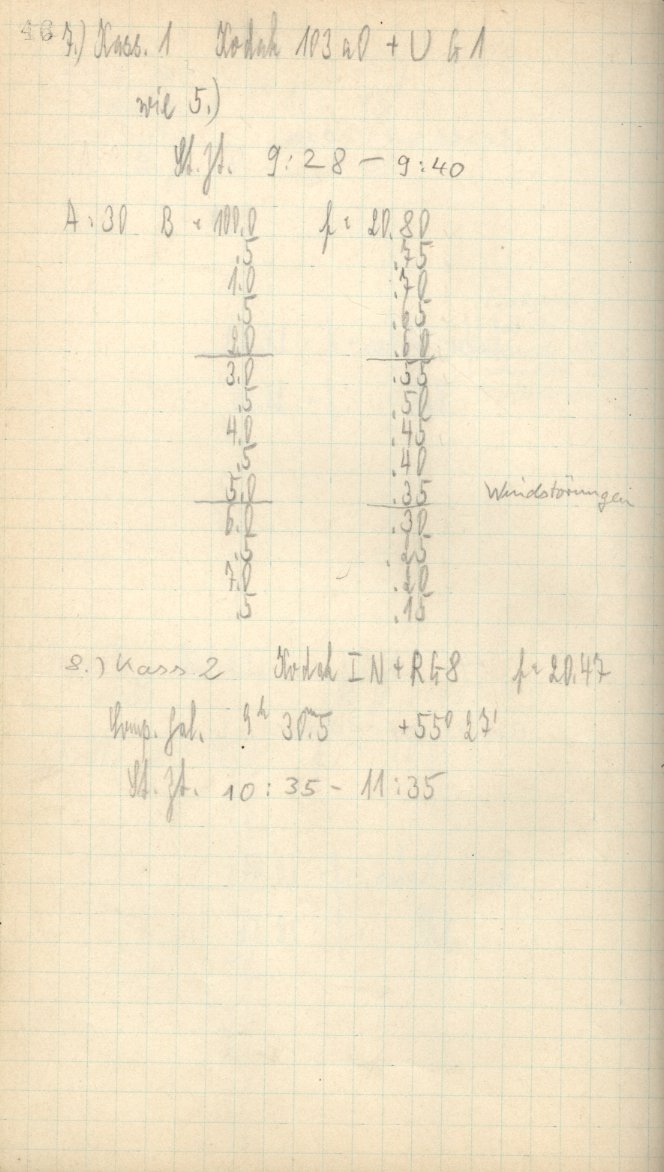 46
7.) Kass. 1 Kodak 103 aO + U G 1
wie 5.)
St. Zt. 9:28 – 9:40
A = 30 B = 100.0 f = 20.80
.5 .75
1.0 .70
.5 .65
2.0 .60
3.0 .55
.5 .50
4.0 .45
.5 .40
5.0 .35 Windstörungen
6.0 .30
.5 .25
7.0 .20
.5 .15
8.) Kass 2 Kodak I N + RG8 f = 20.47
Comp. Gal. 9h 30m.5 +55° 27'
St. Zt. 10:35 – 11:35